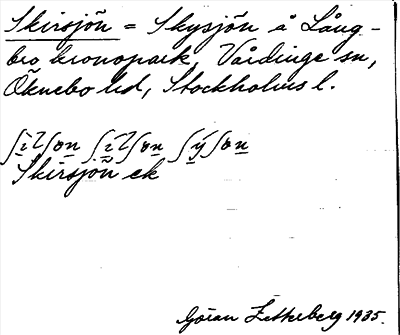 Skirsjön = Skysjön å Lång-
bro kronopark, Vårdinge sn,
Öknebo hd, Stockholms l.
Skirsjön ek
Göran Zetterberg 1935.